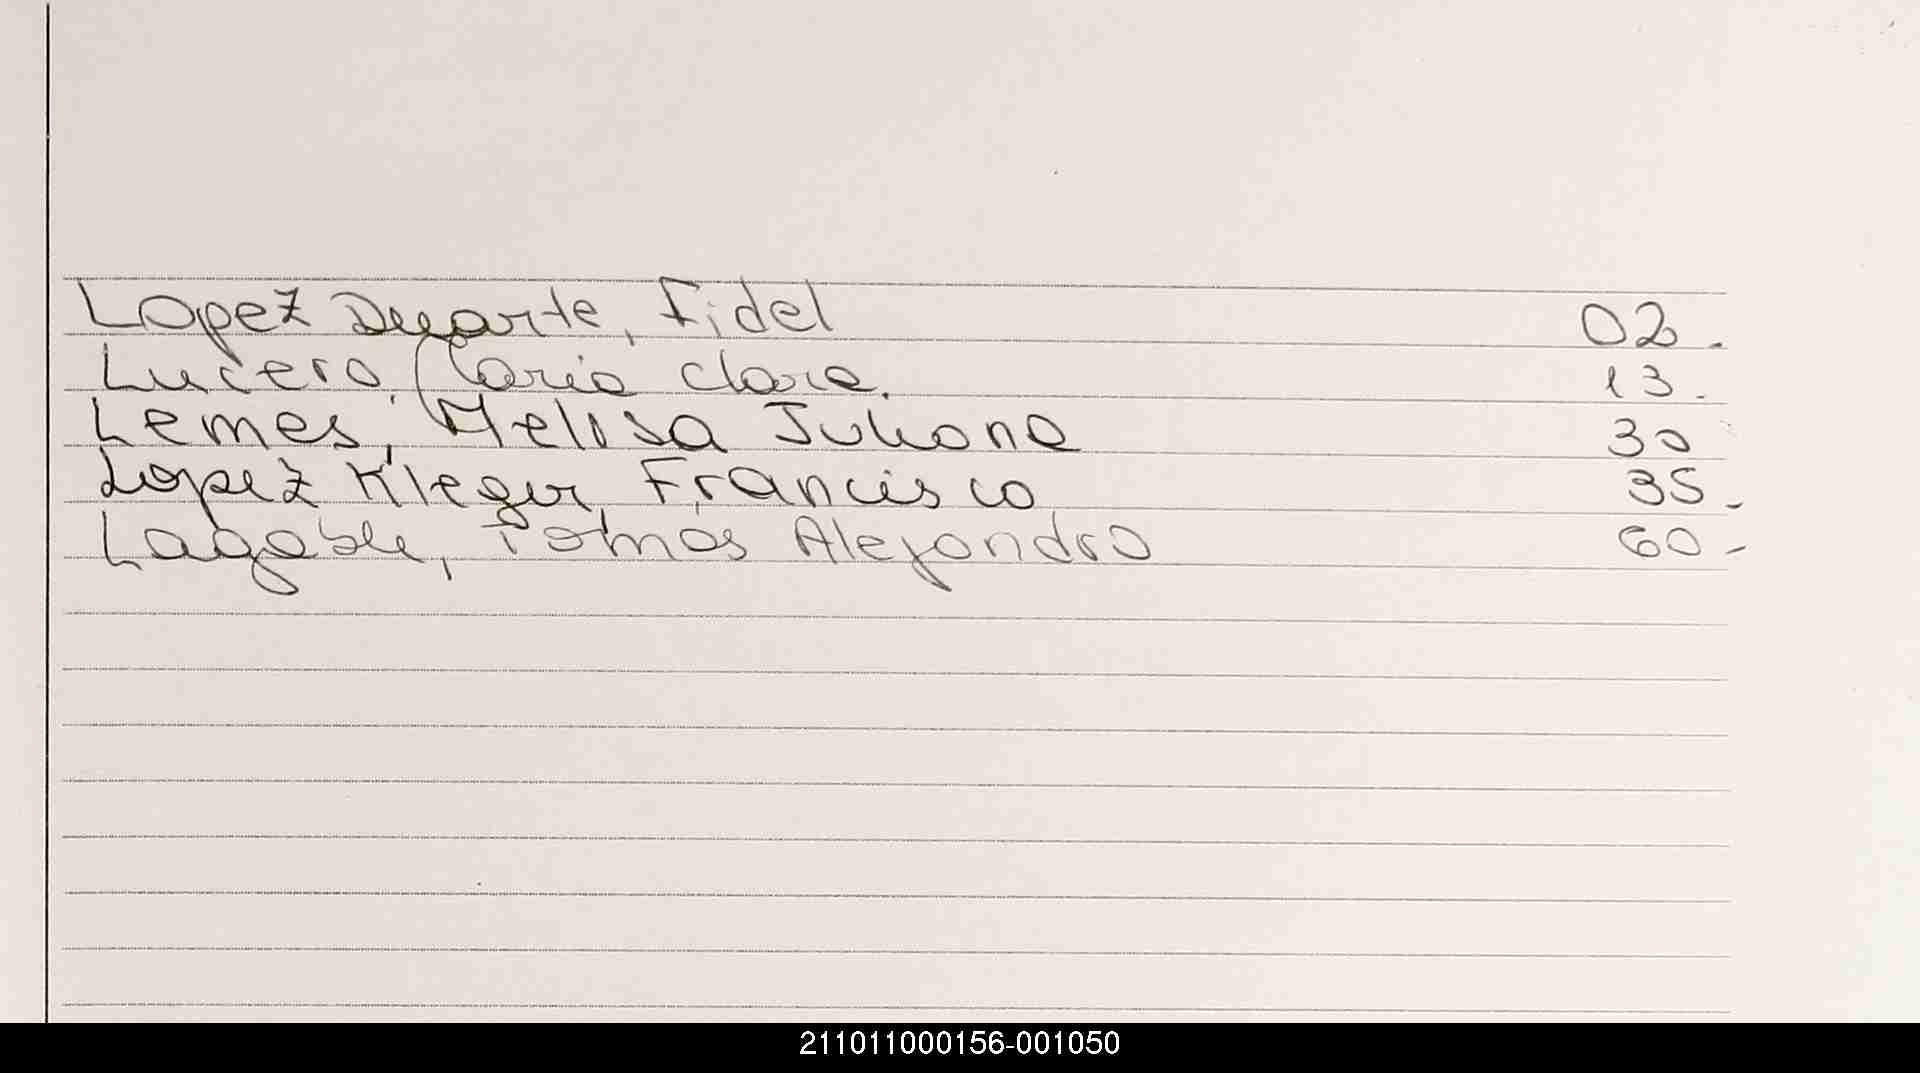 Lopez Duarte, Fidel 02.
Lucero, Maria Clara. 13.
Lemes, Melisa Juliana 30
Lopez Kleger Francisco 35-
Tomás Alejandro 60-
211011000156-001050